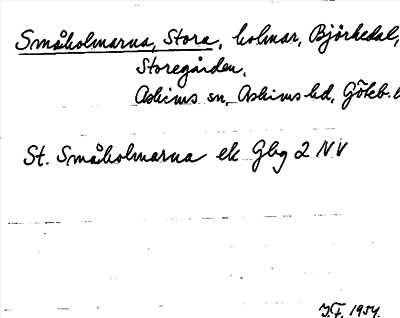 Småholmarna, Stora, holmar, Björkedal,
Storegården,
Askims sn, Askims hd, Göteb.
St. Småholmarna ek Gbg 2 NV
J.F. 1954.